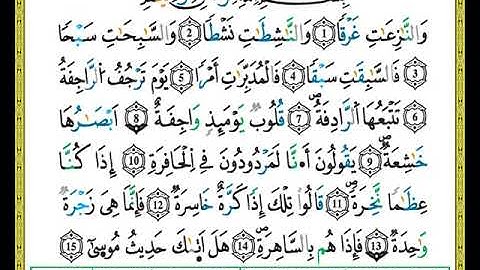 وَالنَّٰزِعَٰتِ غَرْقًا ١ وَالنَّٰشِطَٰتِ نَشْطًا ٢ وَالسَّٰبِحَٰتِ سَبْحًا
٣ فَالسَّٰبِقَٰتِ سَبْقًا ٤ فَالْمُدَبِّرَٰتِ أَمْرًا ٥ يَوْمَ تَرْجُفُ الرَّاجِفَةُ
٦ تَتْبَعُهَا الرَّادِفَةُ ٧ قُلُوبٌ يَوْمَئِذٍ وَاجِفَةٌ ٨ أَبْصَٰرُهَا
خَٰشِعَةٌ ٩ يَقُولُونَ أَءِنَّا لَمَرْدُودُونَ فِي الْحَافِرَةِ ١٠ إِذَا كُنَّا
عِظَٰمًا نَّخِرَةً ١١ قَالُوا تِلْكَ إِذًا كَرَّةٌ خَاسِرَةٌ ١٢ فَإِنَّمَا هِيَ زَجْرَةٌ
وَٰحِدَةٌ ١٣ فَإِذَا هُم بِالسَّاهِرَةِ ١٤ هَلْ أَتَىٰكَ حَدِيثُ مُوسَىٰٓ ١٥